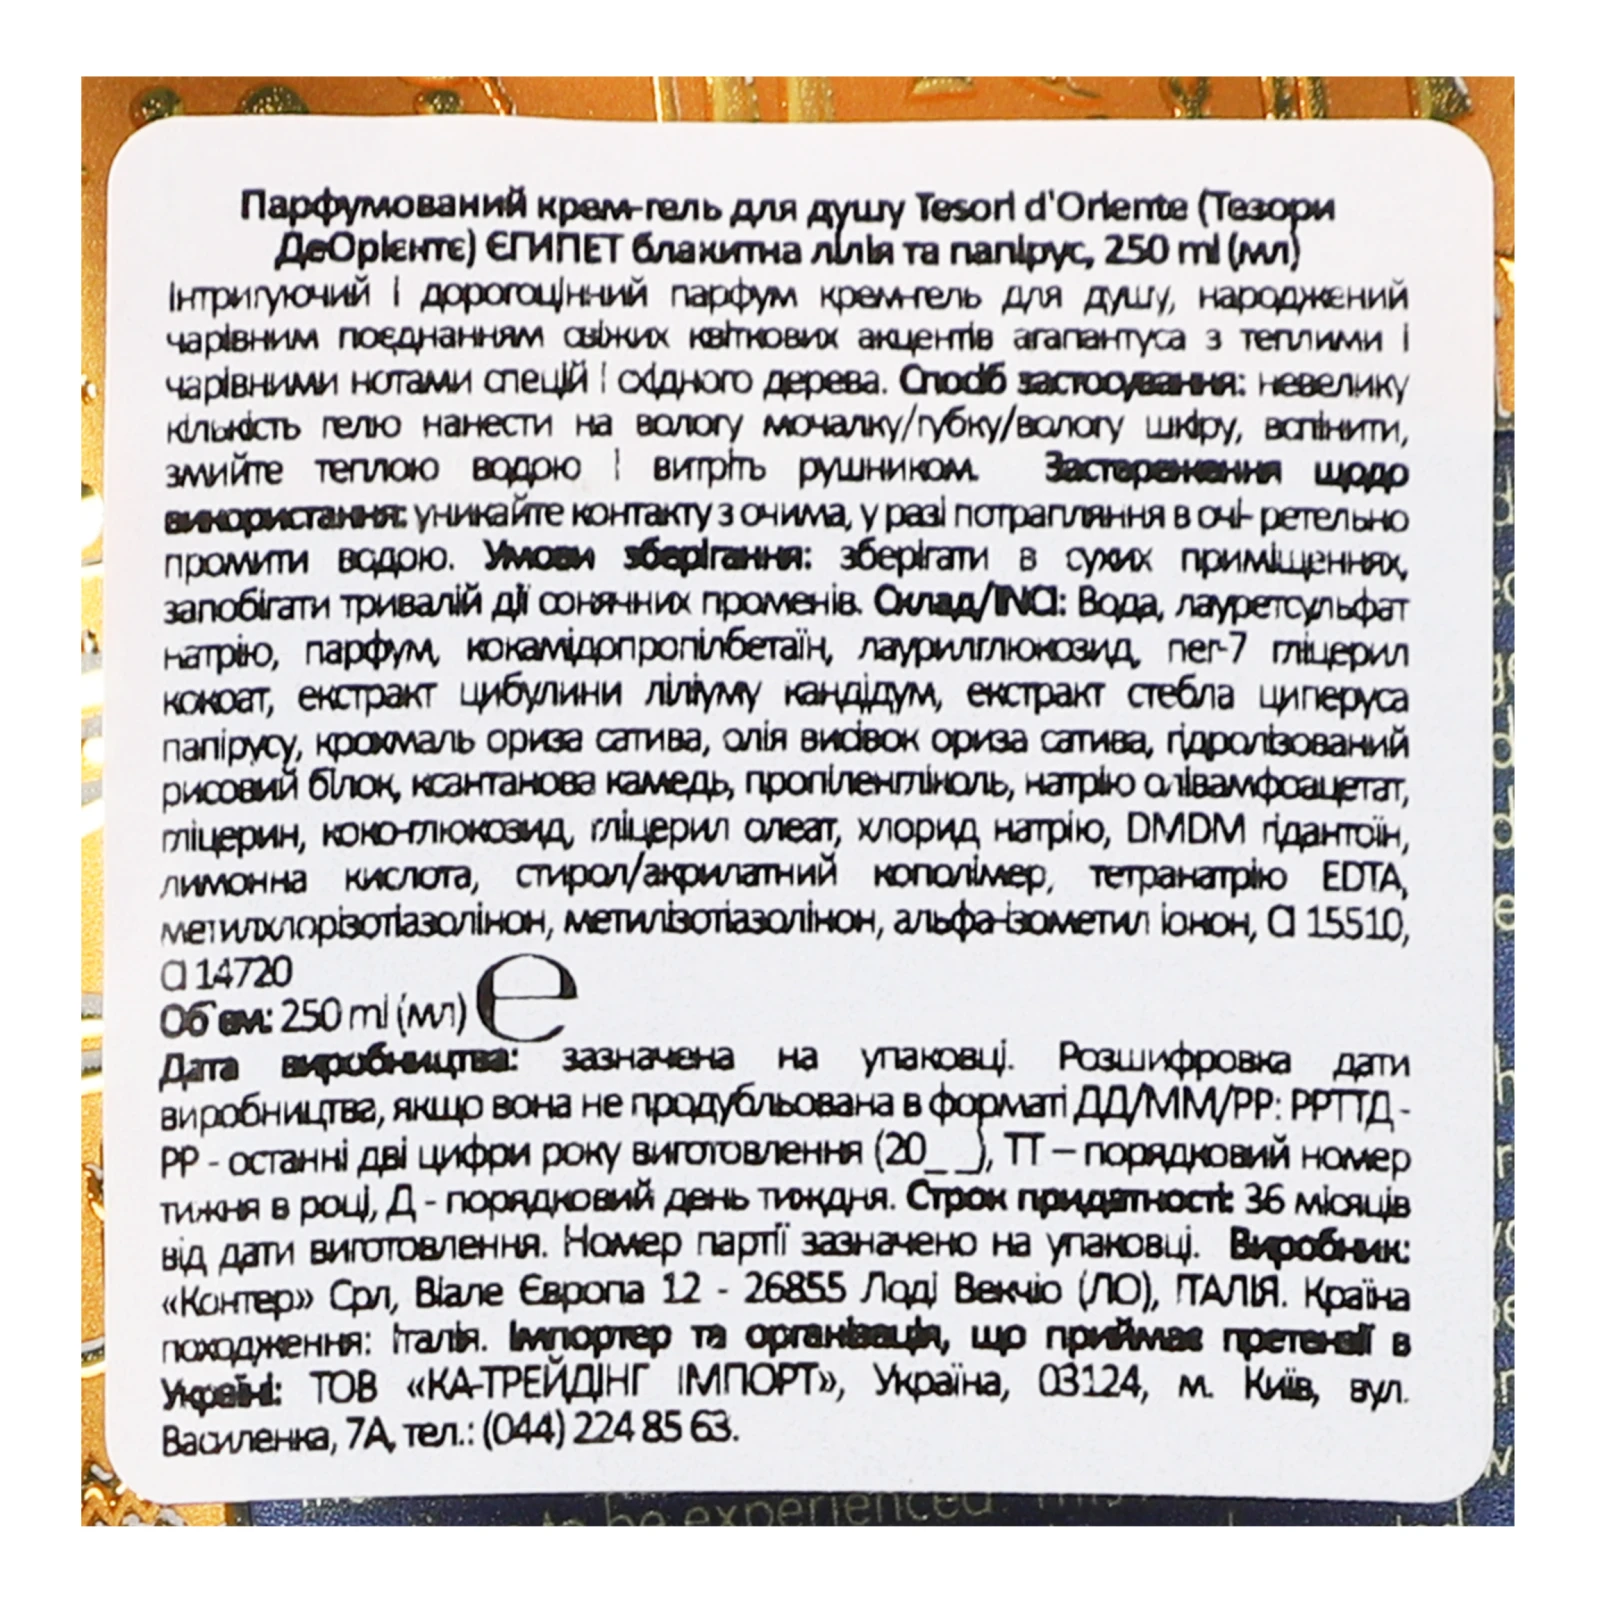 Парфумований крем-гель для душу Tesori d'Oriente (Тезори
ДеОрієнтє) ЄГИПЕТ блакитна лілія та папірус, 250 ml (мл)
Інтригуючий і дорогоцінний парфум крем-гель для душу, народжений
чарівним поєднанням свіжих квіткових акцентів агапантуса з теплими і
чарівними нотами спецій і східного дерева. Спосіб застосування: невелику
кількість гелю нанести на вологу мочалку/губку/вологу шкіру, вспінити,
змийте теплою водою і витріть рушником. Застереження щодо
використання: уникайте контакту з очима, у разі потрапляння в очі- ретельно
промити водою. Умови зберігання: зберігати в сухих приміщеннях,
запобігати тривалій дії сонячних променів. Склад/INCI: Вода, лауретсульфат
натрію, парфум, кокамідопропілбетаїн, лаурилглюкозид, пег-7 гліцерил
кокоат, екстракт цибулини ліліуму кандідум, екстракт стебла циперуса
папірусу, крохмаль ориза сатива, олія висівок ориза сатива, гідролізований
рисовий білок, ксантанова камедь, пропіленгліколь, натрію олівамфоацетат,
гліцерин, коко-глюкозид, гліцерил олеат, хлорид натрію, DMDM гідантоїн,
лимонна кислота, стирол/акрилатний кополімер, тетранатрію EDTA,
метилхлорізотіазолінон, метилізотіазолінон, альфа-ізометил іонон, CI 15510,
CI 14720
Об`єм: 250 ml (мл) e
Дата виробництва: зазначена на упаковці. Розшифровка дати
виробництва, якщо вона не продубльована в форматі ДД/ММ/РР: РРТТД -
РР - останні дві цифри року виготовлення (20_ _), ТТ – порядковий номер
тижня в році, Д - порядковий день тиждня. Строк придатності: 36 місяців
від дати виготовлення. Номер партії зазначено на упаковці. Виробник:
«Контер» Срл, Віале Європа 12 - 26855 Лоді Векчіо (ЛО), ІТАЛІЯ. Країна
походження: Італія. Імпортер та організація, що приймає претензії в
Україні: ТОВ «КА-ТРЕЙДІНГ ІМПОРТ», Україна, 03124, м. Київ, вул.
Василенка, 7А, тел.: (044) 224 85 63.
to be experienced.